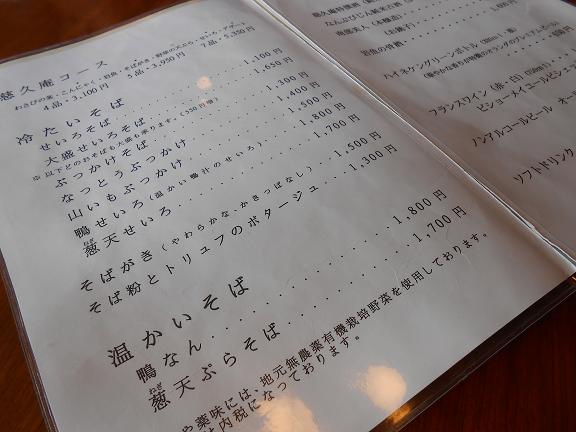 慈久庵コース
わさびの葉・こんにゃく・岩魚・そばがき・野菜の天ぷら・せいろ・デザート
4品・3,100円 5品・3,950円 7品・5,350円
冷たいそば
せいろそば 1,100円
大盛せいろそば 1,650円
※以下どのおそばも大盛も承ります。(550円増)
ぶっかけそば 1,300円
なっとうぶっかけ 1,400円
山いもぶっかけ 1,500円
鴨せいろ(温かい鴨汁のせいろ) 1,800円
葱天せいろ 1,700円
ねぎ
そばがき(やわらかな、かきっぱなし) 1,500円
そば粉とトリュフのポタージュ 1,300円
温かいそば
鴨なん 1,800円
葱天ぷらそば 1,700円
ねぎ
や薬味には、地元無農薬有機栽培野菜を使用しております。
内税になっております。
なんぶびじん純米吟醸
岩魚の骨酒
ハイネケングリーンボトル
フランスワイン(赤・白)
ノンアルコールビール オー
ソフトドリンク